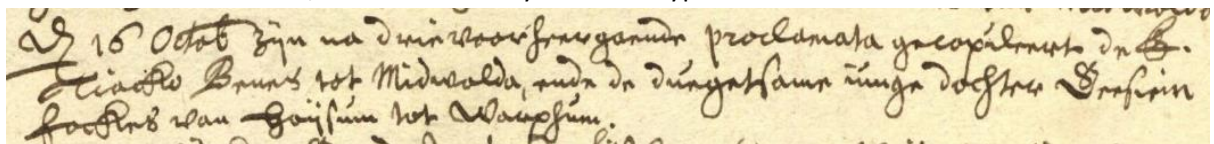 D 16 Octob zijn na drie voorheergaende proclamata gecopileert de E.
Tiacko Benes tot Midwolda, ende de duegetsame iunge dochter Geesien
Fockles van Hoijsum tot Warphum.